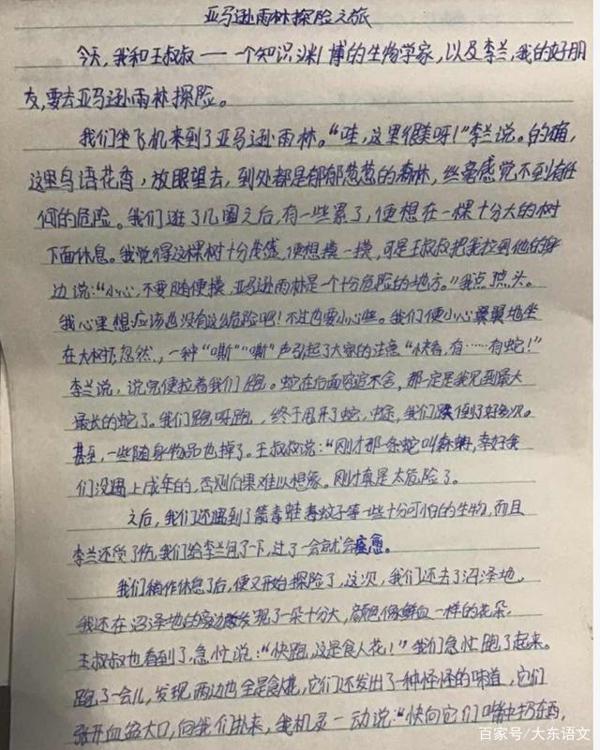 亚马逊雨林探险之旅
今天,我和王叔叔——一个知识渊博的生物学家,以及李兰,我的好朋
友,要去亚马逊雨林探险。
我们坐飞机来到了亚马逊雨林。“哇,这里很美呀!”李兰说。的确,
这里鸟语花香,放眼望去,到处都是郁郁葱葱的森林,丝毫感觉不到有任
何的危险。我们逛了几圈之后,有一些累了,便想在一棵十分大的树
下面休息。我觉得这棵树十分茂盛,便想摸一摸,可是王叔叔把我拉到他的身
边说:“小心,不要随便摸,亚马逊雨林是一个十分危险的地方。”我点点头。
我心里想:应该也没有这么危险吧!不过也要小心些。我们便小心翼翼地坐
在大树下,忽然,一种“嘶”“嘶”声引起了大家的注意“快看,有……有蛇!”
李兰说,说完便拉着我们跑。蛇在后面穷追不舍,那一定是我见到最大
最长的蛇了。我们跑呀跑,终于甩开了蛇,中途,我们跌倒了好多次。
甚至,一些随身物品也掉了。王叔叔说:“刚才那条蛇叫森蚺,幸好我
们没遇上成年的,否则后果难以想象。刚才真是太危险了。
之后,我们还遇到了箭毒蛙毒蚊子等一些十分可怕的生物,而且
李兰还受了伤,我们给李兰包了一下,过了一会就会痊愈。
我们稍作休息了后,便又开始探险了,这次,我们还去了沼泽地,
我还在沼泽地的旁边发现了一朵十分大,颜色像鲜血一样的花朵,
王叔叔也看到了,急忙说:“快跑,这是食人花!”我们急忙跑了起来。
跑了一会儿,发现两边也全是食人花,它们还发出了一种怪怪的味道,它们
张开血盆大口,向我们扑来,我机灵一动说:“快向它们嘴中扔东西,
百家号/大东语文